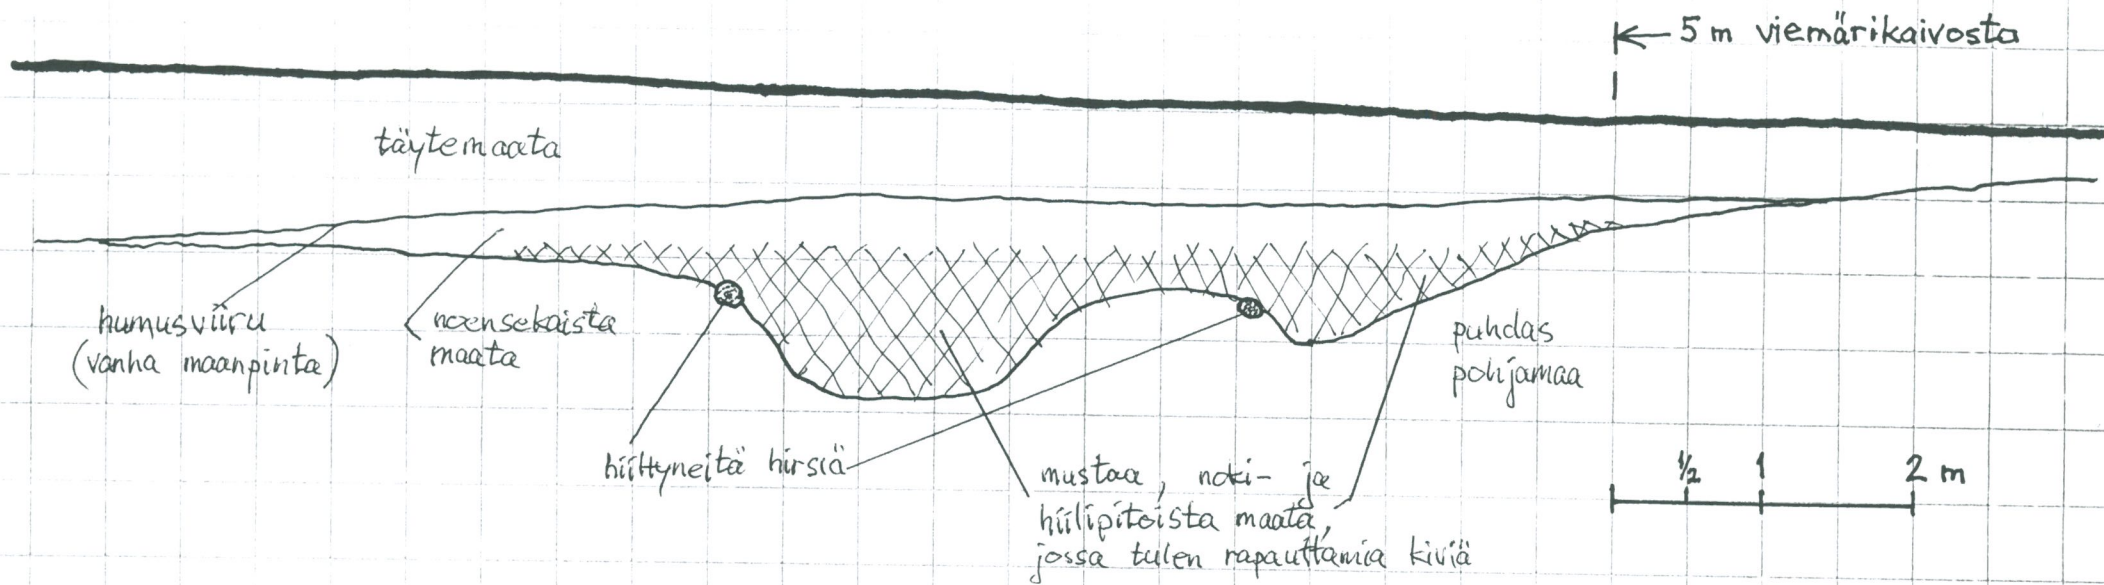 5 m viemärikaivosta
täytemaata
humusviiru
(vanha maanpinta)
noensekaista
maata
puhdas
pohjamaa
hiiltyneitä hirsiä
mustaa, noki- ja
hiilipitoista maata,
jossa tulen rapauttamia kiviä
½ 1 2 m